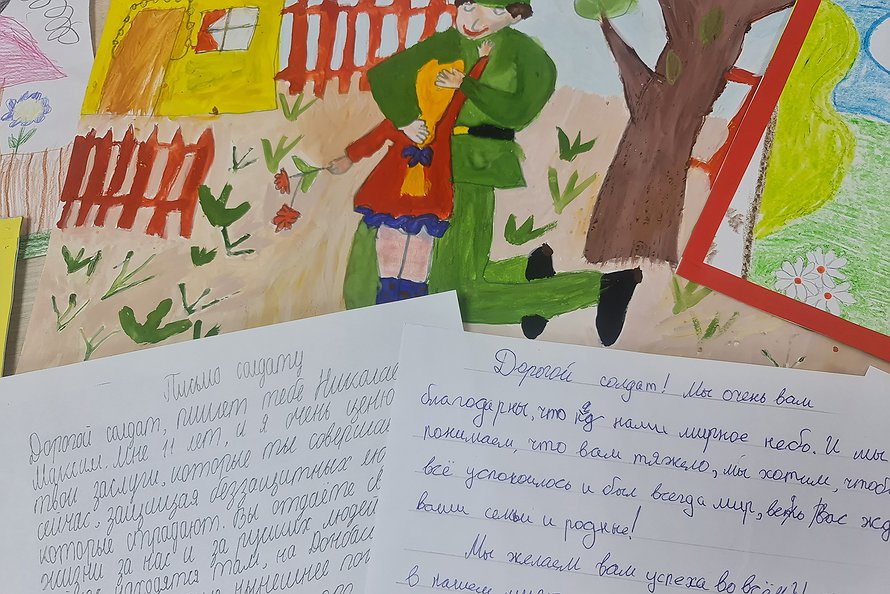 Письмо солдату
Дорогой солдат, пишет тебе Николае
Максим. Мне 11 лет, и я очень ценю
твои заслуги, которые ты совершае
сейчас, защищая беззащитных лю
которые страдают. Вы отдаёте св
жизни за нас и за русских людей
находятся там, на Донбас
нынешнее пог
Дорогой солдат! Мы очень вам
благодарны, что нами мирное небо. И мы
понимаем, что вам тяжело, мы хотим, чтобы
всё успокоилось и был всегда мир, ведь Вас жд
ваши семьи и родные!
Мы желаем вам успеха во всём!
в нашем